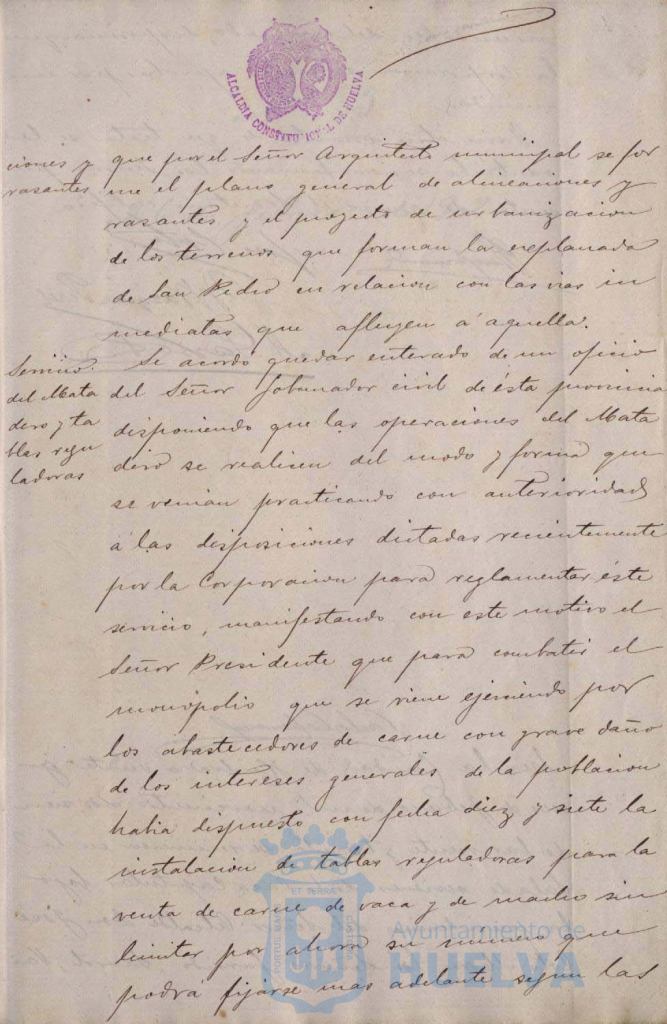 ALCALDIA CONSTITUCIONAL DE HUELVA
ciones y
rasantes
que por el Señor Arquitecto municipal se for
me el plano general de alineaciones y
rasantes y el proyecto de urbanizacion
de los terrenos que forman la explanada
de San Pedro en relacion con las vias in
mediatas que afluyen á aquella.
Servicio
del Mata
dero y ta
blas regu
ladoras
Se acordó quedar enterado de un oficio
del Señor Gobernador civil de ésta provincia
disponiendo que las operaciones del Mata
dero se realicen del modo y forma que
se venian practicando con anterioridad
á las disposiciones dictadas recientemente
por la Corporacion para reglamentar éste
servicio, manifestando con este motivo el
Señor Presidente que para combatir el
monópolio que se viene ejerciendo por
los abastecedores de carne con grave daño
de los intereses generales de la poblacion
habia dispuesto con fecha diez y siete la
instalacion de tablas reguladoras para la
venta de carne de vaca y de macho sin
limitar por ahora su número que
podrá fijarse mas adelante segun las
Ayuntamiento de
HUELVA